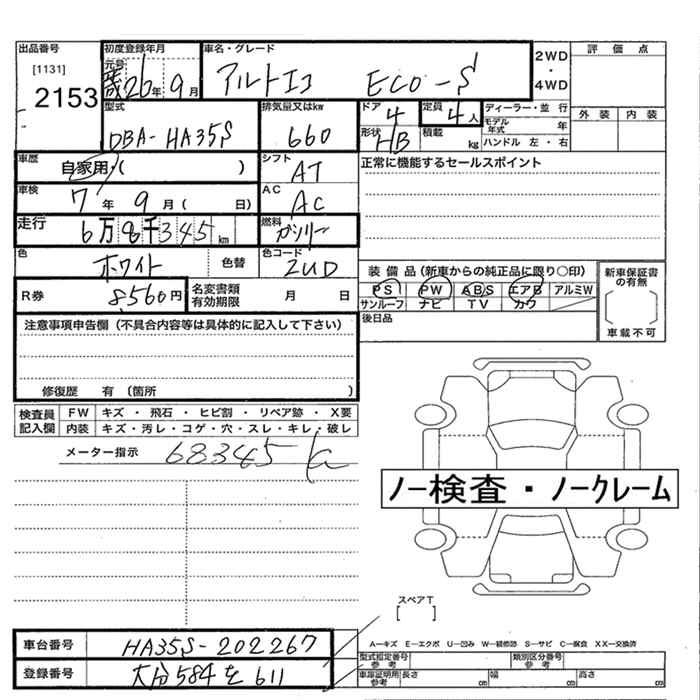 出品番号
[1131]
2153
初度登録年月
元号
26年 9月
車名・グレード
アルトエコ ECO-S
2WD
・
4WD
評価点
外装 内装
型式
DBA-HA35S
排気量又はkw
660
ドア
4
形状
HB
定員
4人
積載
kg
ディーラー・並行
モデル年式 年
ハンドル 左・右
車歴
自家用・( )
シフト
AT
正常に機能するセールスポイント
車検
7年 9月( 日)
AC
AC
走行
6万8千345km
燃料
ガソリン
色
ホワイト
色替
色コード
ZUD
装備品(新車からの純正品に限り○印)
PS PW ABS エアB アルミW
サンルーフ ナビ TV カワ
新車保証書の有無
[ ]
車載不可
R券
8560円
名変書類有効期限
月 日
後日品
注意事項申告欄(不具合内容等は具体的に記入して下さい)
修復歴 有(箇所 )
検査員記入欄
FW キズ・飛石・ヒビ割・リペア跡・X要
内装 キズ・汚レ・コゲ・穴・スレ・キレ・破レ
メーター指示
68345
ノー検査・ノークレーム
スペアT
[ ]
車台番号
HA35S-202267
登録番号
大分 584 を 611
A-キズ E-エクボ U-凹み W-補修跡 S-サビ C-腐食 XX-交換済
型式指定番号
参考
類別区分番号
参考
車庫証明用
参考
長さ cm 幅 cm 高さ cm